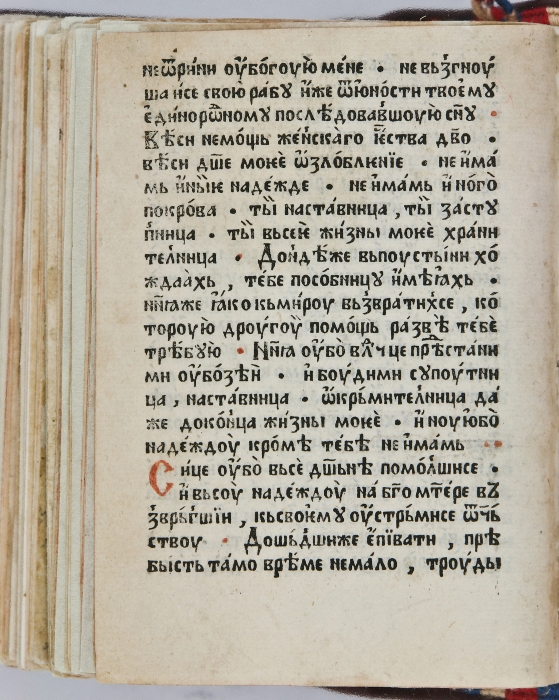 не ѿрини оу҆бо́гоую мене • не въз̾гноу́
ша исе свою рабꙋ и҆́же ѿю́ности твоемꙋ
е҆дино́рѡⷣномꙋ послѣ́довавшоую сн҃ꙋ •
вѣси немо́щь же́нскаго є҆ства дв҃о •
вѣси дш҃е моѥ ѡ҆ѕлоблѥнїе • не и҆ма́
мь и҆ныѥ наде́жде • не и҆ма́мь и҆ но́го
покро́ва • ты̀ наста́вница , ты̀ за́стꙋ
пница • ты̀ вьсеѥ жи́зны моѥ хра́ни
телница • До́ндѣже въпоусты́ни хо́
ждаахь , те́бе посо́бницꙋ и҆мѣꙗхь •
нн҃ꙗже ꙗ҆ко къми́роу възврати́хсе , ко́
тороую̀ дроу́гоу помо́щь ра́звѣ те́бе
тре́бꙋю • Нн҃ꙗ оу҆бо̀ влⷣчце прѣ́стани
ми оу҆бо́зѣи • и҆ боу́дими сꙋпоу́тни
ца , наста́вница • ѡ҆кръми́телница да́
же доко́нца жи́зны моѥ • и҆ ноу́юбо
наде́ждоу кро́мѣ те́бѣ не и҆мамь •
Сице оу҆бо вьсѐ дш҃ьнѣ помо́лшисе •
и҆ вьсоу̀ наде́ждоу на́ бг҃о мт҃ере въ
зврьгшїи , къ своѥмꙋ оу҆стрьми́се ѿчь
ствоу • Дошьдшиже е҆пївати , прѣ
бы́сть та́мо врѣ́ме нема́ло , троу́ды